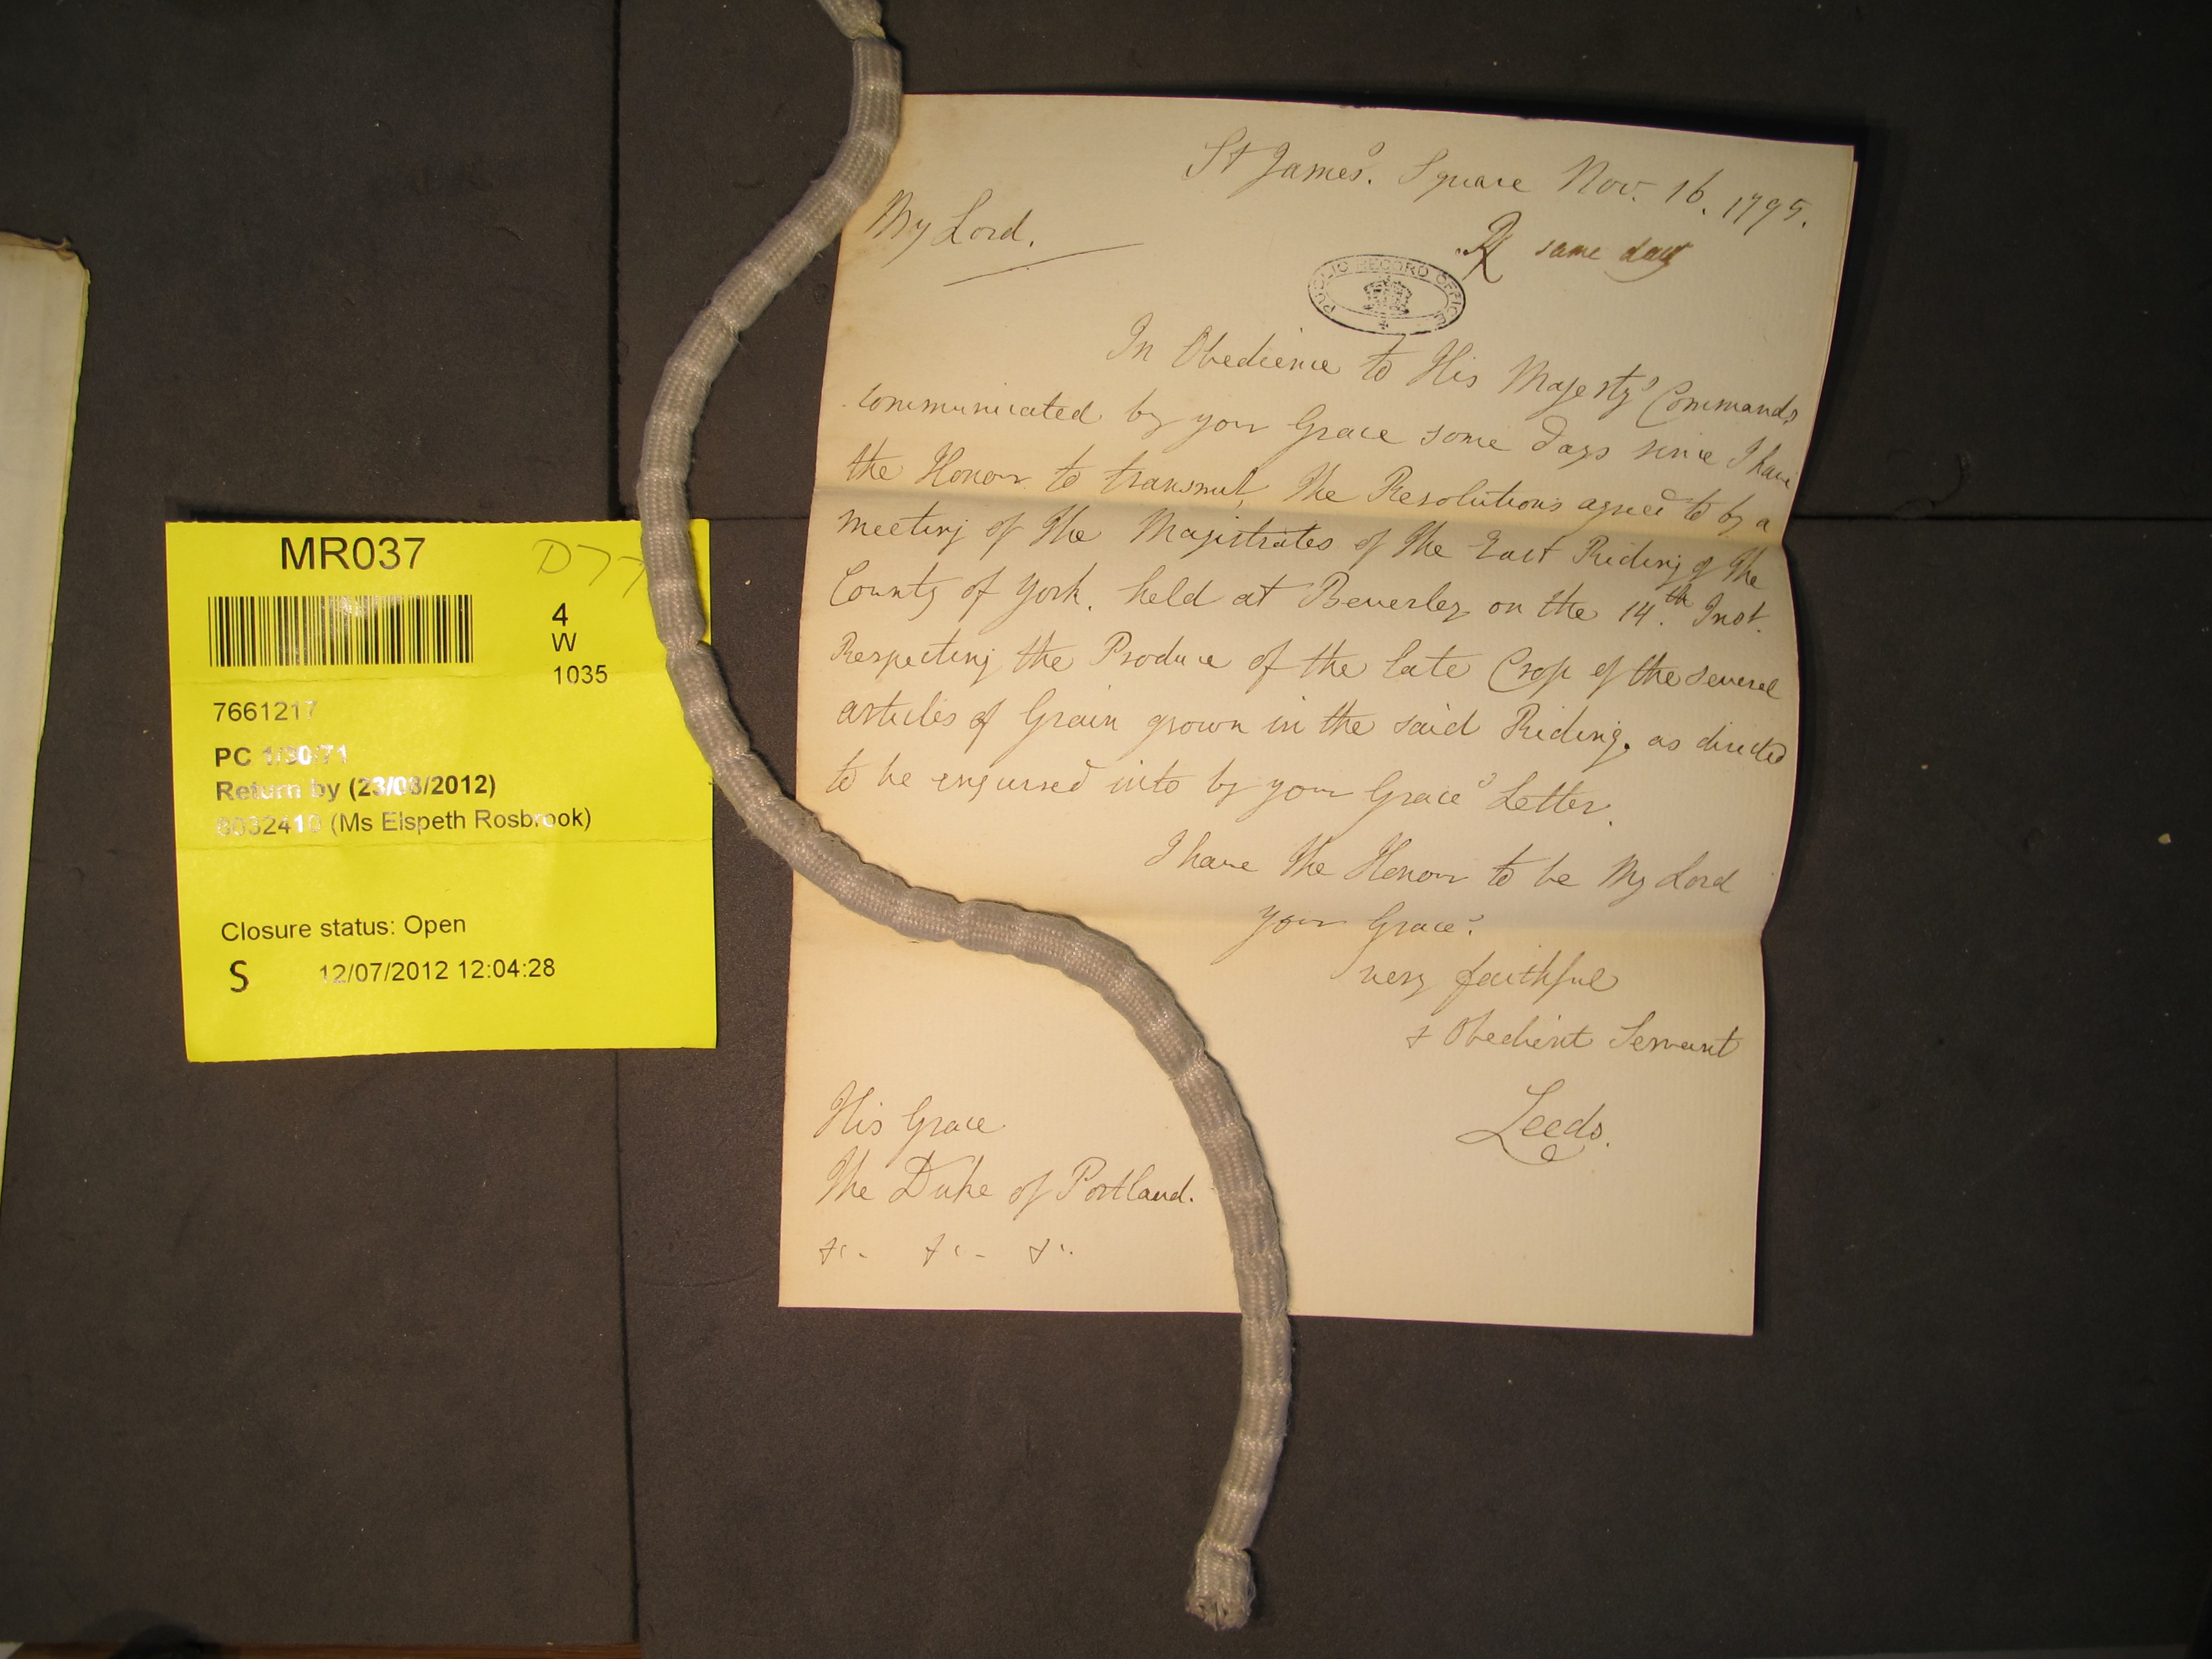 St James's. Square Nov. 16. 1795.
My Lord.
R same day
PUBLIC RECORD OFFICE
In Obedience to His Majesty's Commands
communicated by your Grace some days since I have
the Honour to transmit, the Resolutions agreed to by a
meeting of the Magistrates of the East Riding of the
County of York. held at Beverley on the 14th. Inst.
Respecting the Produce of the late Crop of the several
articles of Grain grown in the said Riding, as directed
to be enquired into by your Grace's Letter.
I have the Honour to be My Lord
your Grace's
very faithful
& Obedient Servant
Leeds.
His Grace
The Duke of Portland.
&c. &c. &c.
MR037
4
W
1035
7661217
PC 1/30/71
Return by (23/08/2012)
6032410 (Ms Elspeth Rosbrook)
Closure status: Open
S 12/07/2012 12:04:28